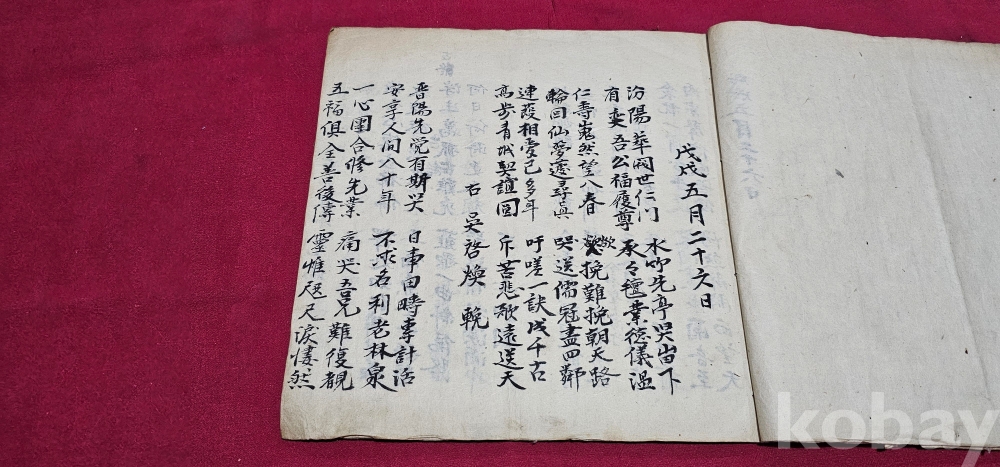 戊戌五月二十六日
汾陽華閥世仁門 水 先亭哭 下
有奕吾公福履尊 承々氊業德儀溫
仁壽嵬然望八春 歎挽難挽朝天路
輪回仙夢遽尋眞 哭送儒冠盡四鄰
連葭相愛已多年 吁嗟一訣成千古
高步青城契誼圓 斥苦悲歌遠送天
右 吳啓煥 輓
晋陽先覚有斯哭 日事田疇專計活
安享人间八十年 不求名利老林泉
一心團合修先業 痛哭吾兄難復覩
五福俱全善後傳 靈帷咫尺淚悽然
kobay